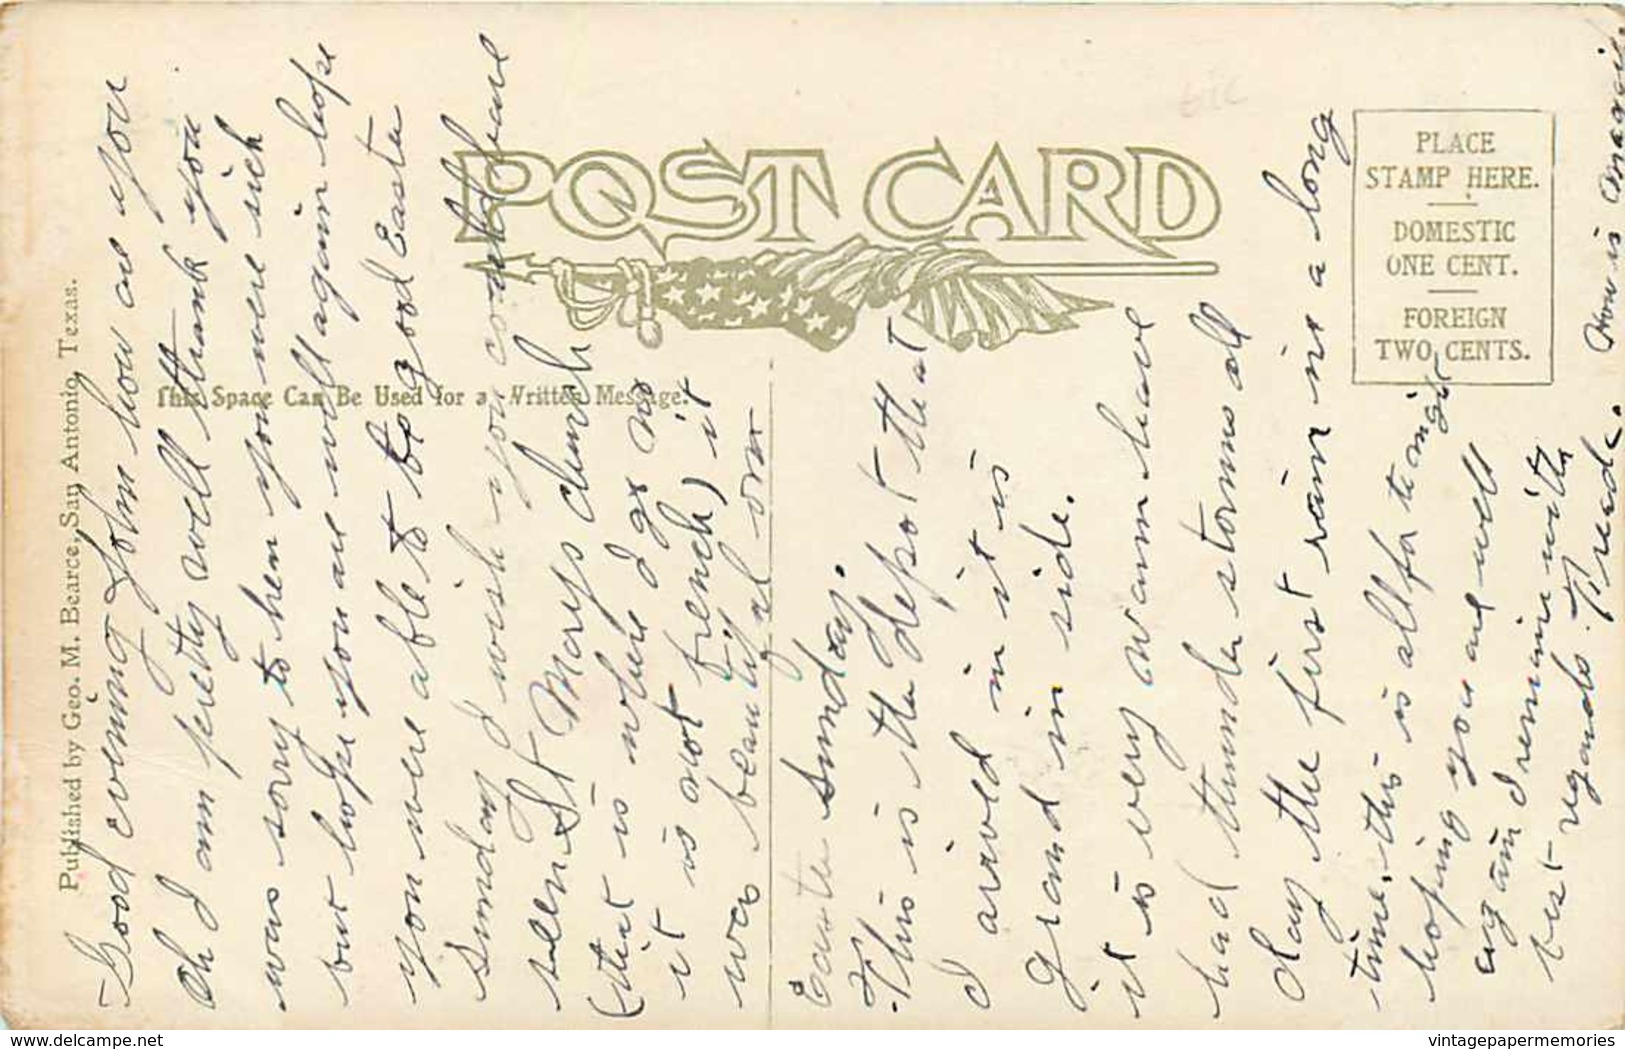 Good evening John how are you
Oh I am pretty well thank you
was sorry to hear you were sick
but hope you are well again hope
you were able to be good Easter
Sunday I wish you could have
seen St Marys church
(that is where I go no
it is not French) it
was beautiful on
Easter Sunday.
This is the depot that
I arived in it is
grand in side.
it is very warm have
had thunder storms all
day the first rain in a long
time, this is all for to night
hoping you are well
again I remain with
best regards. Fred.
How is
POST CARD
This Space Can Be Used for a Written Message.
PLACE
STAMP HERE.
DOMESTIC
ONE CENT.
FOREIGN
TWO CENTS.
Published by Geo. M. Bearce, San Antonio, Texas.
www.delcampe.net
vintagepapermemories